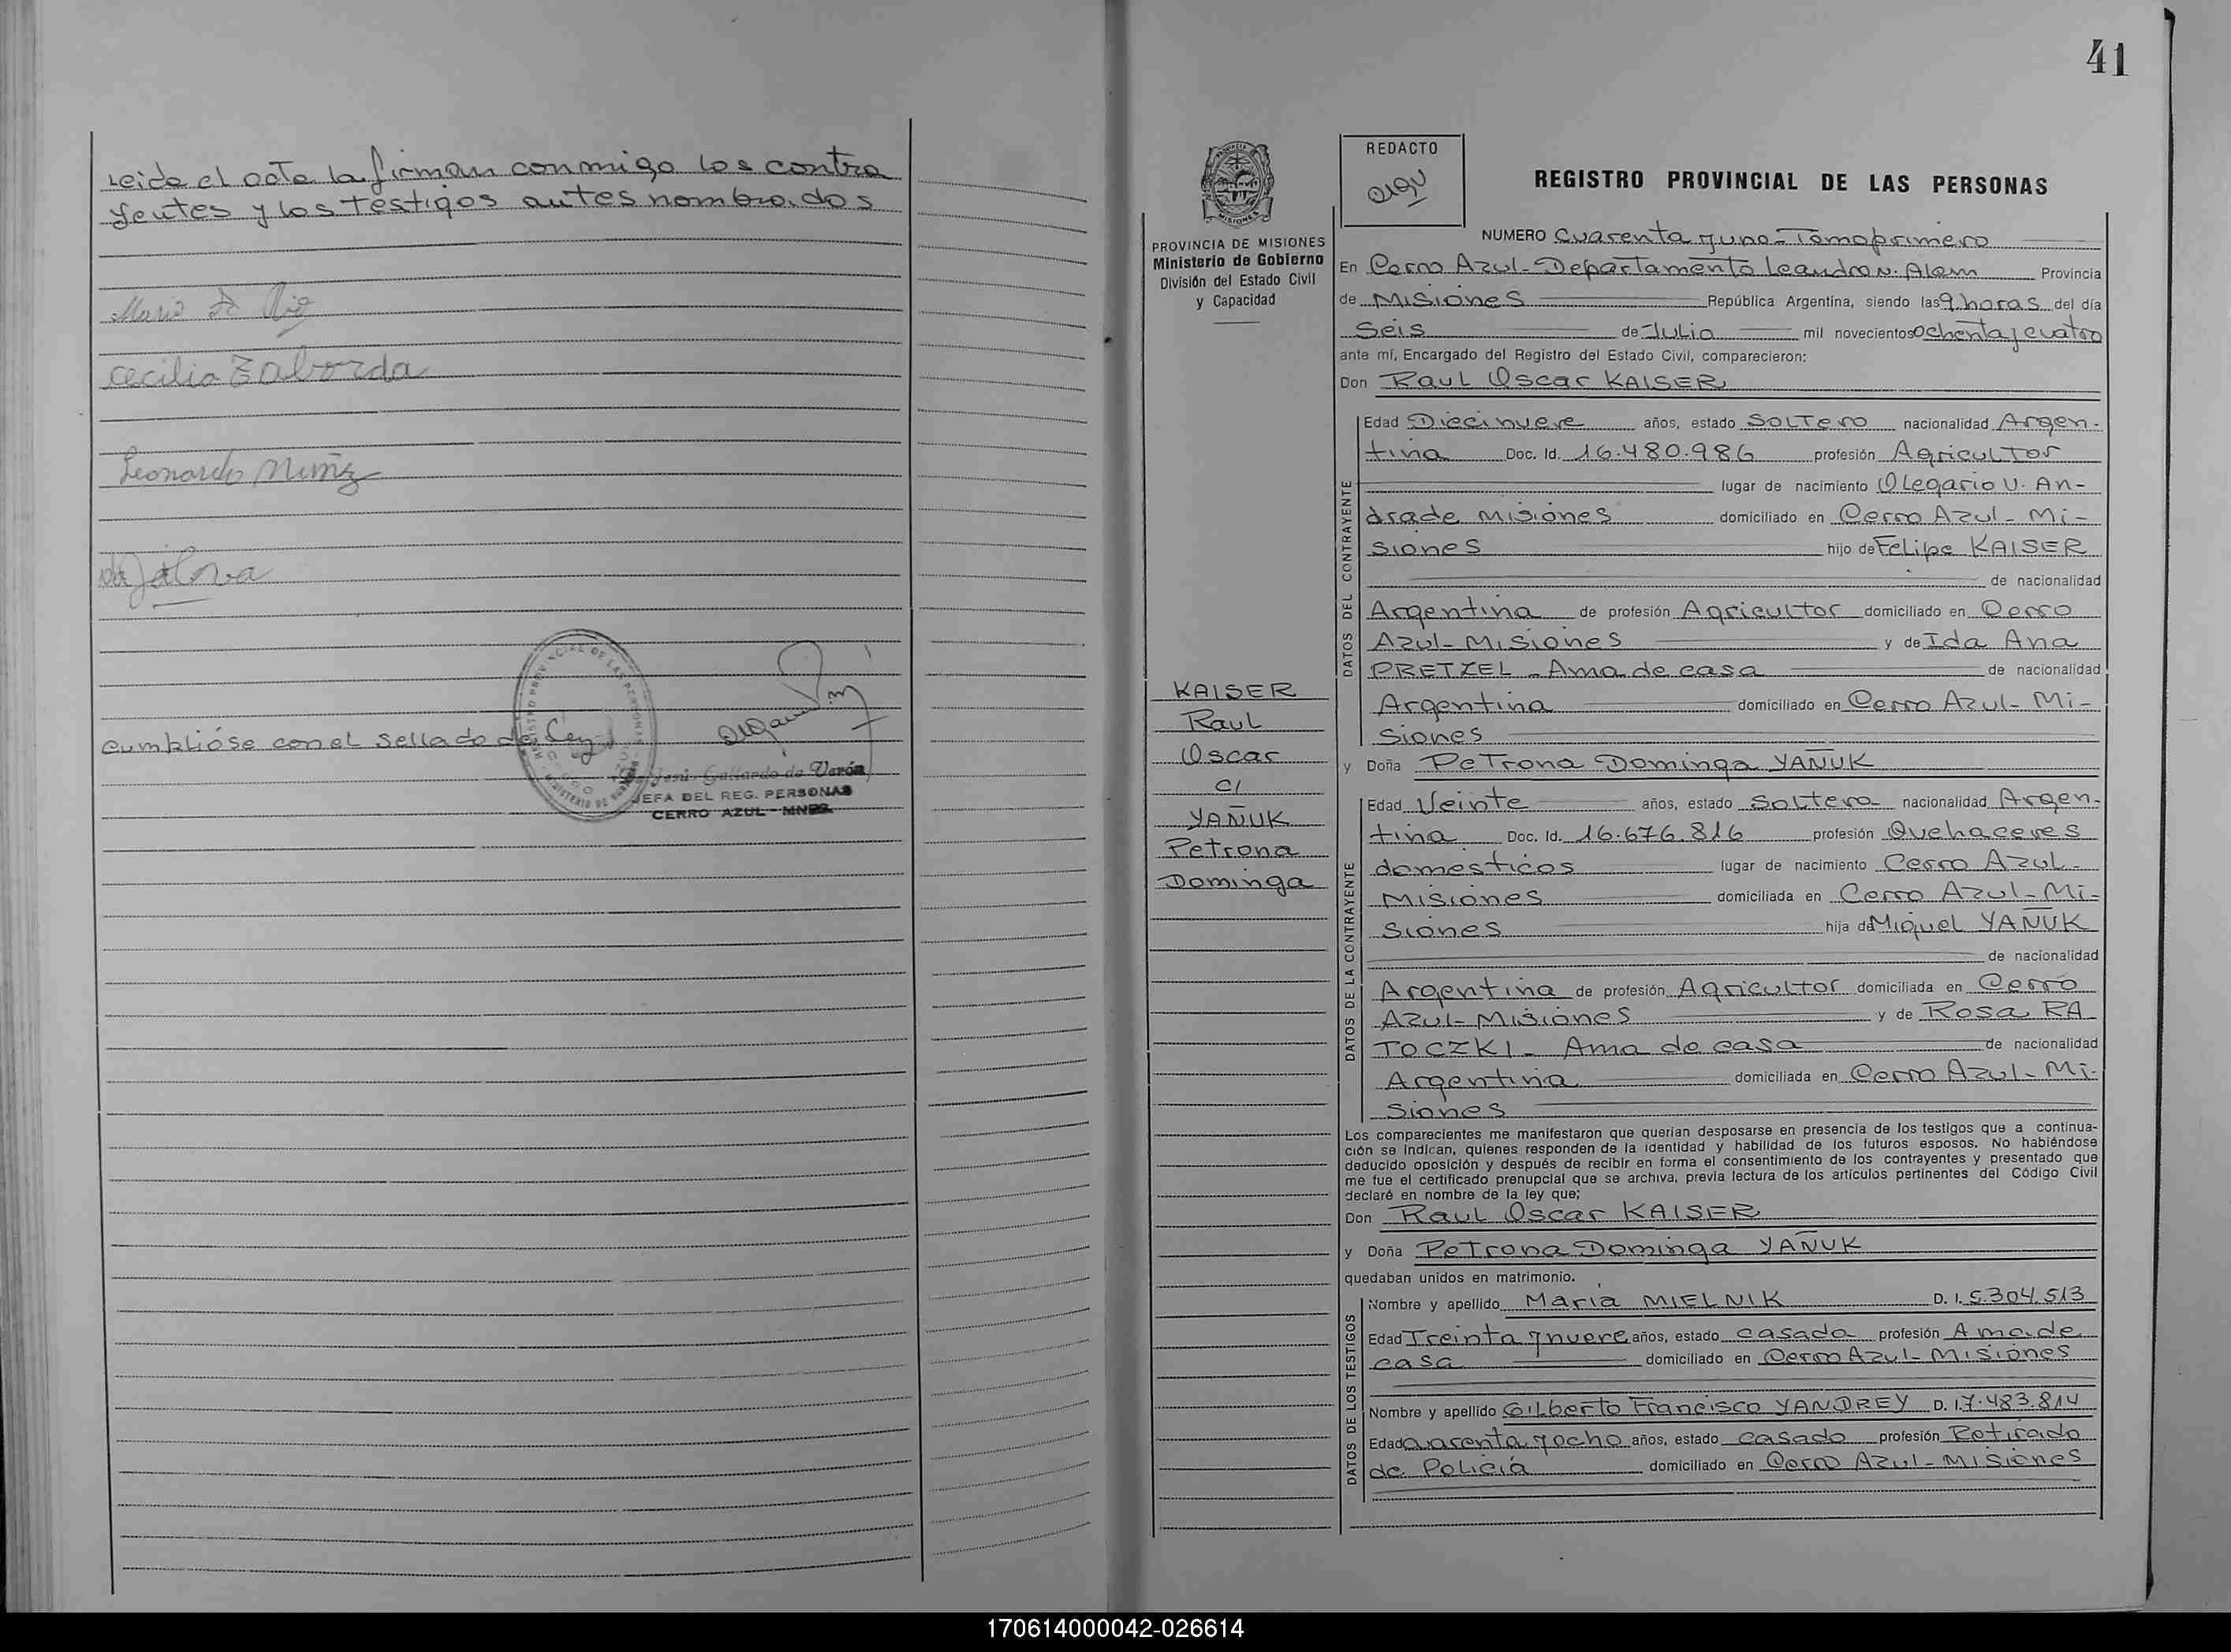 Leida el acta la firman conmigo los contra
yentes y los testigos antes nombrados
Cecilia Zaborda
Leonardo Muniz
Cumplióse con el sellado de Ley
Gallardo de Verón
JEFA DEL REG. PERSONAS
CERRO AZUL - MNES.
41
PROVINCIA DE MISIONES
Ministerio de Gobierno
División del Estado Civil
y Capacidad
KAISER
Raul
Oscar
c/
YAÑUK
Petrona
Dominga
REDACTO
REGISTRO PROVINCIAL DE LAS PERSONAS
NUMERO Cuarenta y uno - Tomo primero
En Cerro Azul - Departamento Leandro N. Alem Provincia
de Misiones República Argentina, siendo las 9 horas del día
Seis de Julio mil novecientos ochenta y cuatro
ante mí, Encargado del Registro del Estado Civil, comparecieron:
Don Raul Oscar KAISER
DATOS DEL CONTRAYENTE
Edad Diecinueve años, estado Soltero nacionalidad Argen-
tina Doc. Id. 16.480.986 profesión Agricultor
lugar de nacimiento Olegario V. An-
drade Misiones domiciliado en Cerro Azul - Mi-
siones hijo de Felipe KAISER
de nacionalidad
Argentina de profesión Agricultor domiciliado en Cerro
Azul - Misiones y de Ida Ana
PRETZEL - Ama de casa de nacionalidad
Argentina domiciliado en Cerro Azul - Mi-
siones
y Doña Petrona Dominga YAÑUK
DATOS DE LA CONTRAYENTE
Edad Veinte años, estado Soltera nacionalidad Argen-
tina Doc. Id. 16.676.816 profesión Quehaceres
domesticos lugar de nacimiento Cerro Azul -
Misiones domiciliada en Cerro Azul - Mi-
siones hija de Miguel YAÑUK
de nacionalidad
Argentina de profesión Agricultor domiciliada en Cerro
Azul - Misiones y de Rosa RA
TOCZKI - Ama de casa de nacionalidad
Argentina domiciliada en Cerro Azul - Mi-
siones
Los comparecientes me manifestaron que querían desposarse en presencia de los testigos que a continua-
ción se indican, quienes responden de la identidad y habilidad de los futuros esposos. No habiéndose
deducido oposición y después de recibir en forma el consentimiento de los contrayentes y presentado que
me fue el certificado prenupcial que se archiva, previa lectura de los artículos pertinentes del Código Civil
declaré en nombre de la ley que;
Don Raul Oscar KAISER
y Doña Petrona Dominga YAÑUK
quedaban unidos en matrimonio.
DATOS DE LOS TESTIGOS
Nombre y apellido Maria MIELNIK D. I. 5.304.513
Edad Treinta y nueve años, estado casada profesión Ama de
casa domiciliado en Cerro Azul - Misiones
Nombre y apellido Gilberto Francisco YANDREY D. I. 7.483.814
Edad Cuarenta y ocho años, estado casado profesión Retirado
de Policia domiciliado en Cerro Azul - Misiones
170614000042-026614